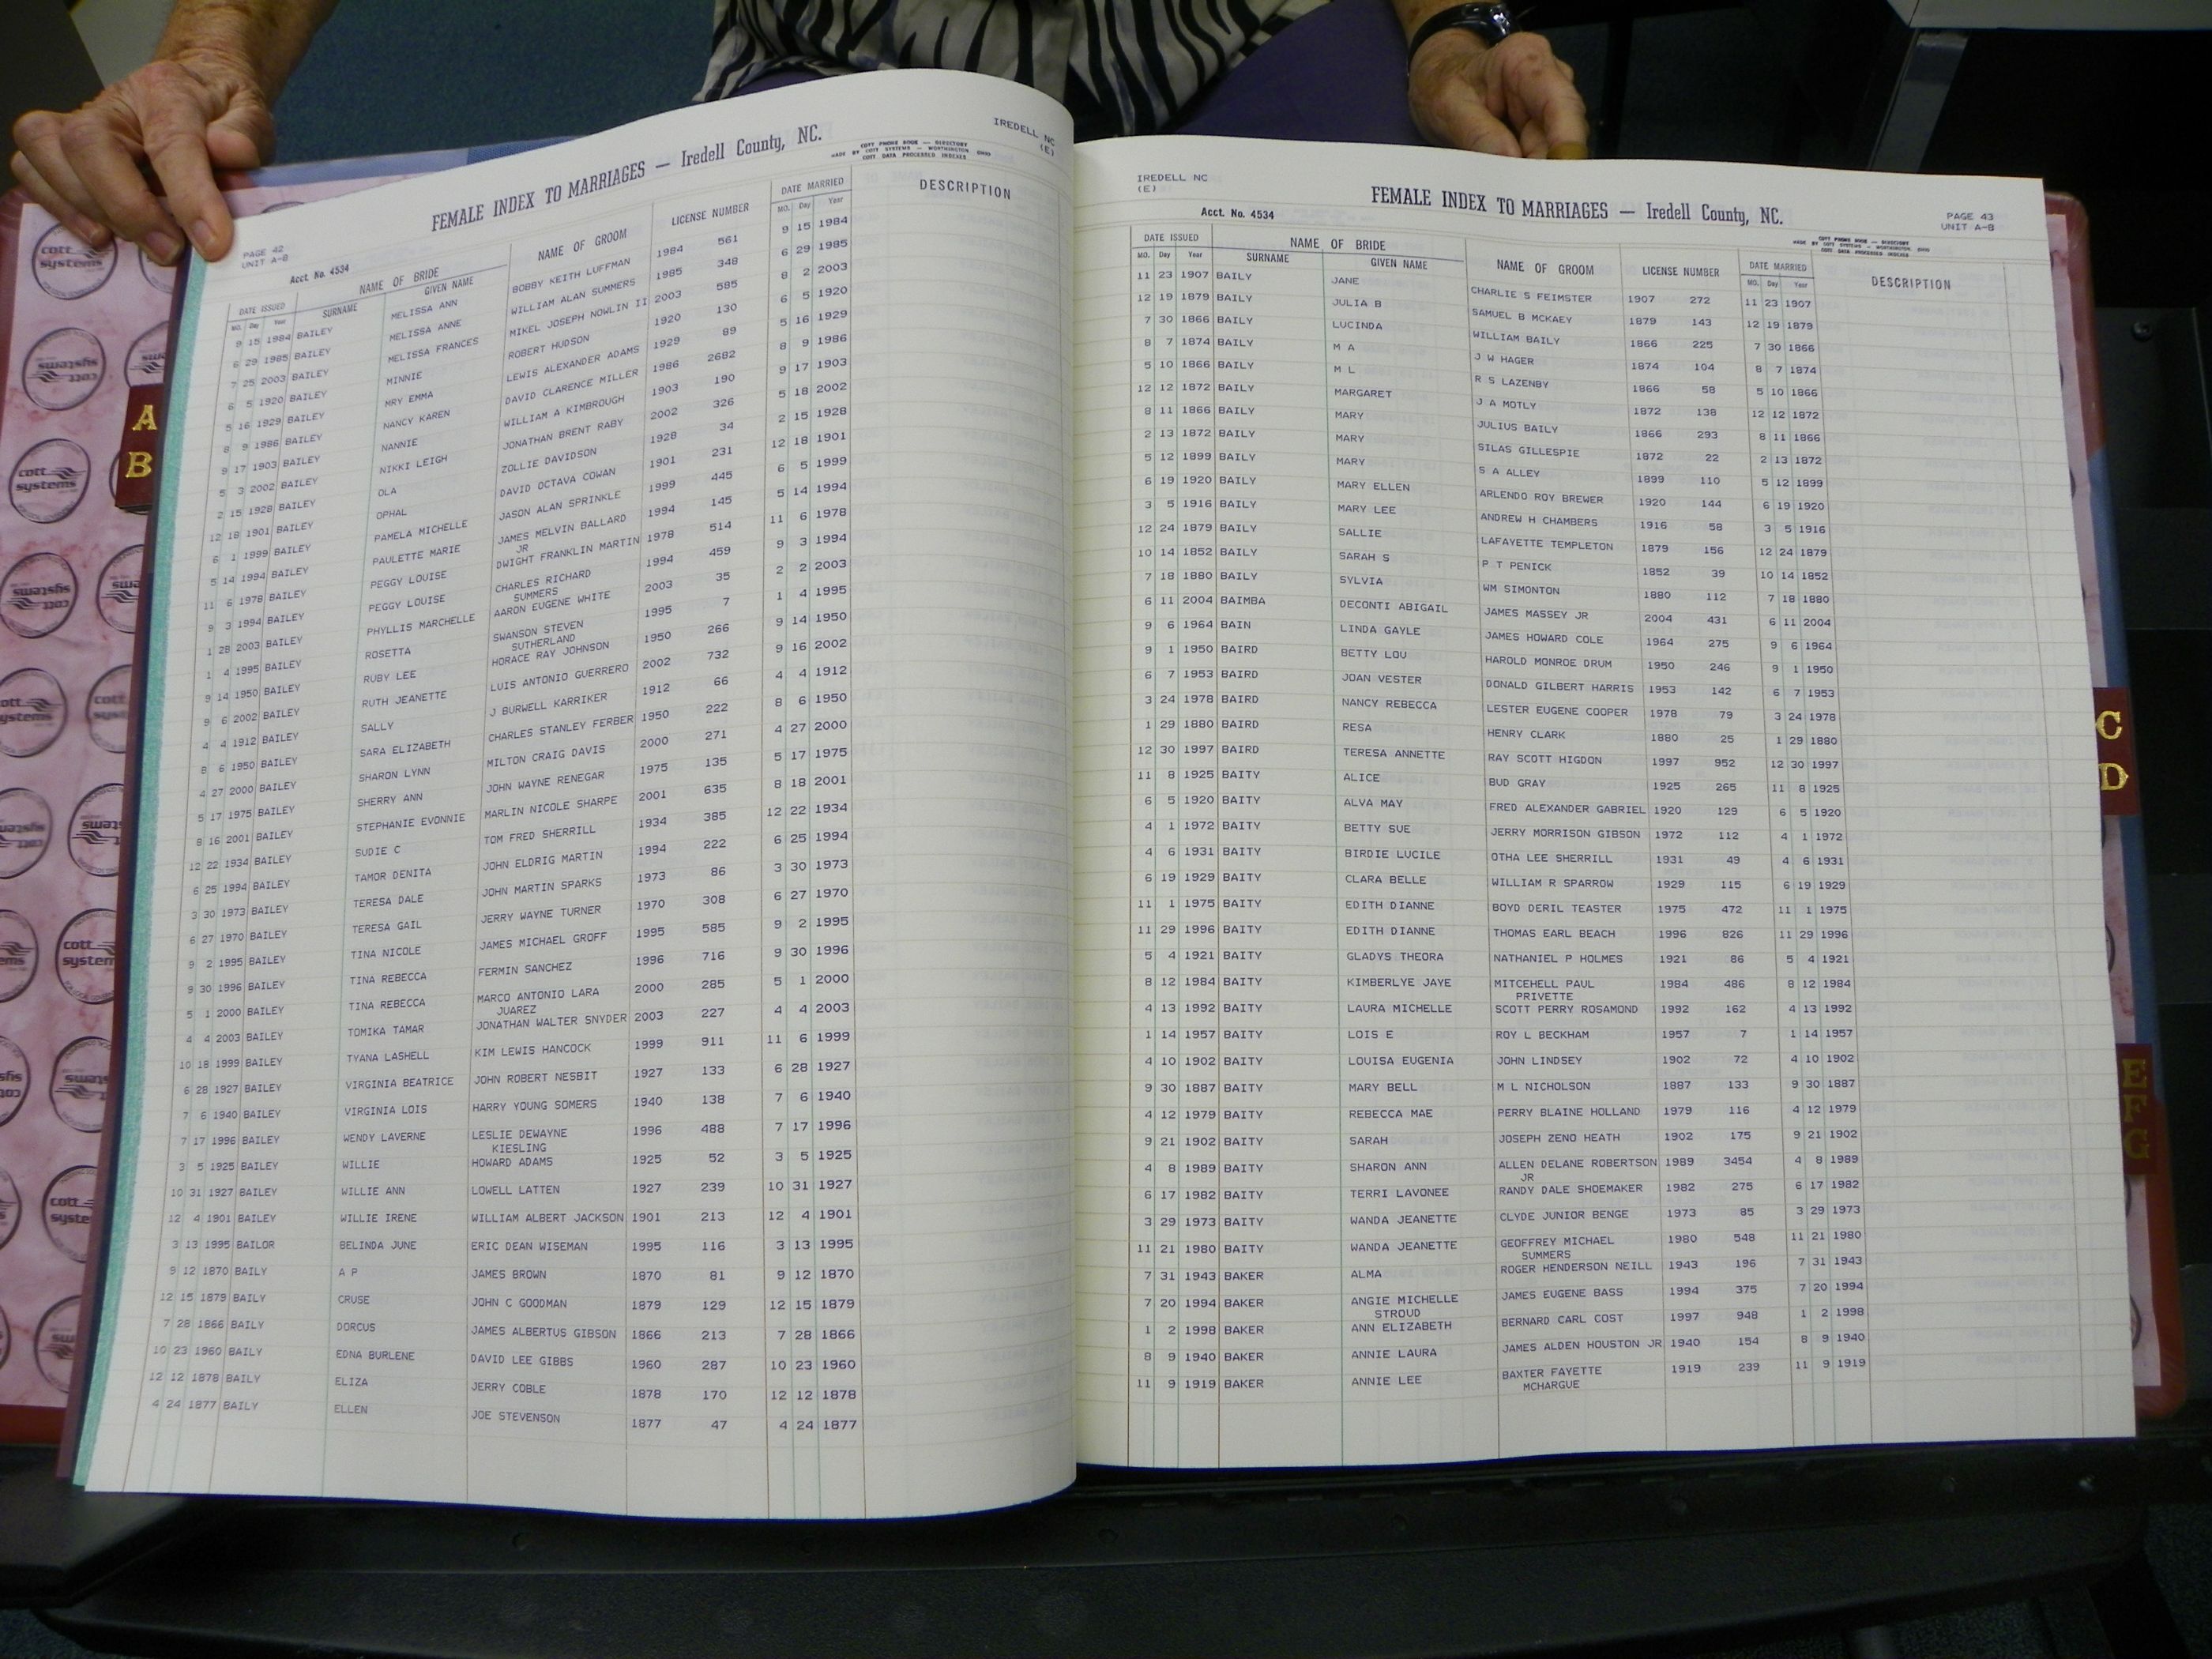 IREDELL NC
(E)
FEMALE INDEX TO MARRIAGES — Iredell County, NC.
COTT PHONE BOOK — DIRECTORY
MADE BY COTT SYSTEMS — WORTHINGTON, OHIO
COTT DATA PROCESSED INDEXES
PAGE 42
UNIT A-B
Acct. No. 4534
DATE ISSUED NAME OF BRIDE NAME OF GROOM LICENSE NUMBER DATE MARRIED DESCRIPTION
MO. Day Year SURNAME GIVEN NAME MO. Day Year
9 15 1984 BAILEY MELISSA ANN BOBBY KEITH LUFFMAN 1984 561 9 15 1984
6 29 1985 BAILEY MELISSA ANNE WILLIAM ALAN SUMMERS 1985 348 6 29 1985
7 25 2003 BAILEY MELISSA FRANCES MIKEL JOSEPH NOWLIN II 2003 585 8 2 2003
6 5 1920 BAILEY MINNIE ROBERT HUDSON 1920 130 6 5 1920
5 16 1929 BAILEY MRY EMMA LEWIS ALEXANDER ADAMS 1929 89 5 16 1929
8 9 1986 BAILEY NANCY KAREN DAVID CLARENCE MILLER 1986 2682 8 9 1986
9 17 1903 BAILEY NANNIE WILLIAM A KIMBROUGH 1903 190 9 17 1903
5 3 2002 BAILEY NIKKI LEIGH JONATHAN BRENT RABY 2002 326 5 18 2002
2 15 1928 BAILEY OLA ZOLLIE DAVIDSON 1928 34 2 15 1928
12 18 1901 BAILEY OPHAL DAVID OCTAVA COWAN 1901 231 12 18 1901
6 1 1999 BAILEY PAMELA MICHELLE JASON ALAN SPRINKLE 1999 445 6 5 1999
5 14 1994 BAILEY PAULETTE MARIE JAMES MELVIN BALLARD 1994 145 5 14 1994
JR
11 6 1978 BAILEY PEGGY LOUISE DWIGHT FRANKLIN MARTIN 1978 514 11 6 1978
9 3 1994 BAILEY PEGGY LOUISE CHARLES RICHARD 1994 459 9 3 1994
SUMMERS
1 28 2003 BAILEY PHYLLIS MARCHELLE AARON EUGENE WHITE 2003 35 2 2 2003
1 4 1995 BAILEY ROSETTA SWANSON STEVEN 1995 7 1 4 1995
SUTHERLAND
9 14 1950 BAILEY RUBY LEE HORACE RAY JOHNSON 1950 266 9 14 1950
9 6 2002 BAILEY RUTH JEANETTE LUIS ANTONIO GUERRERO 2002 732 9 16 2002
4 4 1912 BAILEY SALLY J BURWELL KARRIKER 1912 66 4 4 1912
8 6 1950 BAILEY SARA ELIZABETH CHARLES STANLEY FERBER 1950 222 8 6 1950
4 27 2000 BAILEY SHARON LYNN MILTON CRAIG DAVIS 2000 271 4 27 2000
5 17 1975 BAILEY SHERRY ANN JOHN WAYNE RENEGAR 1975 135 5 17 1975
8 16 2001 BAILEY STEPHANIE EVONNIE MARLIN NICOLE SHARPE 2001 635 8 18 2001
12 22 1934 BAILEY SUDIE C TOM FRED SHERRILL 1934 385 12 22 1934
6 25 1994 BAILEY TAMOR DENITA JOHN ELDRIG MARTIN 1994 222 6 25 1994
3 30 1973 BAILEY TERESA DALE JOHN MARTIN SPARKS 1973 86 3 30 1973
6 27 1970 BAILEY TERESA GAIL JERRY WAYNE TURNER 1970 308 6 27 1970
9 2 1995 BAILEY TINA NICOLE JAMES MICHAEL GROFF 1995 585 9 2 1995
9 30 1996 BAILEY TINA REBECCA FERMIN SANCHEZ 1996 716 9 30 1996
5 1 2000 BAILEY TINA REBECCA MARCO ANTONIO LARA 2000 285 5 1 2000
JUAREZ
4 4 2003 BAILEY TOMIKA TAMAR JONATHAN WALTER SNYDER 2003 227 4 4 2003
10 18 1999 BAILEY TYANA LASHELL KIM LEWIS HANCOCK 1999 911 11 6 1999
6 28 1927 BAILEY VIRGINIA BEATRICE JOHN ROBERT NESBIT 1927 133 6 28 1927
7 6 1940 BAILEY VIRGINIA LOIS HARRY YOUNG SOMERS 1940 138 7 6 1940
7 17 1996 BAILEY WENDY LAVERNE LESLIE DEWAYNE 1996 488 7 17 1996
KIESLING
3 5 1925 BAILEY WILLIE HOWARD ADAMS 1925 52 3 5 1925
10 31 1927 BAILEY WILLIE ANN LOWELL LATTEN 1927 239 10 31 1927
12 4 1901 BAILEY WILLIE IRENE WILLIAM ALBERT JACKSON 1901 213 12 4 1901
3 13 1995 BAILOR BELINDA JUNE ERIC DEAN WISEMAN 1995 116 3 13 1995
9 12 1870 BAILY A P JAMES BROWN 1870 81 9 12 1870
12 15 1879 BAILY CRUSE JOHN C GOODMAN 1879 129 12 15 1879
7 28 1866 BAILY DORCUS JAMES ALBERTUS GIBSON 1866 213 7 28 1866
10 23 1960 BAILY EDNA BURLENE DAVID LEE GIBBS 1960 287 10 23 1960
12 12 1878 BAILY ELIZA JERRY COBLE 1878 170 12 12 1878
4 24 1877 BAILY ELLEN JOE STEVENSON 1877 47 4 24 1877
IREDELL NC
(E)
FEMALE INDEX TO MARRIAGES — Iredell County, NC.
Acct. No. 4534
PAGE 43
UNIT A-B
COTT PHONE BOOK — DIRECTORY
MADE BY COTT SYSTEMS — WORTHINGTON, OHIO
COTT DATA PROCESSED INDEXES
DATE ISSUED NAME OF BRIDE NAME OF GROOM LICENSE NUMBER DATE MARRIED DESCRIPTION
MO. Day Year SURNAME GIVEN NAME MO. Day Year
11 23 1907 BAILY JANE CHARLIE S FEIMSTER 1907 272 11 23 1907
12 19 1879 BAILY JULIA B SAMUEL B MCKAEY 1879 143 12 19 1879
7 30 1866 BAILY LUCINDA WILLIAM BAILY 1866 225 7 30 1866
8 7 1874 BAILY M A J W HAGER 1874 104 8 7 1874
5 10 1866 BAILY M L R S LAZENBY 1866 58 5 10 1866
12 12 1872 BAILY MARGARET J A MOTLY 1872 138 12 12 1872
8 11 1866 BAILY MARY JULIUS BAILY 1866 293 8 11 1866
2 13 1872 BAILY MARY SILAS GILLESPIE 1872 22 2 13 1872
5 12 1899 BAILY MARY S A ALLEY 1899 110 5 12 1899
6 19 1920 BAILY MARY ELLEN ARLENDO ROY BREWER 1920 144 6 19 1920
3 5 1916 BAILY MARY LEE ANDREW H CHAMBERS 1916 58 3 5 1916
12 24 1879 BAILY SALLIE LAFAYETTE TEMPLETON 1879 156 12 24 1879
10 14 1852 BAILY SARAH S P T PENICK 1852 39 10 14 1852
7 18 1880 BAILY SYLVIA WM SIMONTON 1880 112 7 18 1880
6 11 2004 BAIMBA DECONTI ABIGAIL JAMES MASSEY JR 2004 431 6 11 2004
9 6 1964 BAIN LINDA GAYLE JAMES HOWARD COLE 1964 275 9 6 1964
9 1 1950 BAIRD BETTY LOU HAROLD MONROE DRUM 1950 246 9 1 1950
6 7 1953 BAIRD JOAN VESTER DONALD GILBERT HARRIS 1953 142 6 7 1953
3 24 1978 BAIRD NANCY REBECCA LESTER EUGENE COOPER 1978 79 3 24 1978
1 29 1880 BAIRD RESA HENRY CLARK 1880 25 1 29 1880
12 30 1997 BAIRD TERESA ANNETTE RAY SCOTT HIGDON 1997 952 12 30 1997
11 8 1925 BAITY ALICE BUD GRAY 1925 265 11 8 1925
6 5 1920 BAITY ALVA MAY FRED ALEXANDER GABRIEL 1920 129 6 5 1920
4 1 1972 BAITY BETTY SUE JERRY MORRISON GIBSON 1972 112 4 1 1972
4 6 1931 BAITY BIRDIE LUCILE OTHA LEE SHERRILL 1931 49 4 6 1931
6 19 1929 BAITY CLARA BELLE WILLIAM R SPARROW 1929 115 6 19 1929
11 1 1975 BAITY EDITH DIANNE BOYD DERIL TEASTER 1975 472 11 1 1975
11 29 1996 BAITY EDITH DIANNE THOMAS EARL BEACH 1996 826 11 29 1996
5 4 1921 BAITY GLADYS THEORA NATHANIEL P HOLMES 1921 86 5 4 1921
8 12 1984 BAITY KIMBERLYE JAYE MITCEHELL PAUL 1984 486 8 12 1984
PRIVETTE
4 13 1992 BAITY LAURA MICHELLE SCOTT PERRY ROSAMOND 1992 162 4 13 1992
1 14 1957 BAITY LOIS E ROY L BECKHAM 1957 7 1 14 1957
4 10 1902 BAITY LOUISA EUGENIA JOHN LINDSEY 1902 72 4 10 1902
9 30 1887 BAITY MARY BELL M L NICHOLSON 1887 133 9 30 1887
4 12 1979 BAITY REBECCA MAE PERRY BLAINE HOLLAND 1979 116 4 12 1979
9 21 1902 BAITY SARAH JOSEPH ZENO HEATH 1902 175 9 21 1902
4 8 1989 BAITY SHARON ANN ALLEN DELANE ROBERTSON 1989 3454 4 8 1989
JR
6 17 1982 BAITY TERRI LAVONEE RANDY DALE SHOEMAKER 1982 275 6 17 1982
3 29 1973 BAITY WANDA JEANETTE CLYDE JUNIOR BENGE 1973 85 3 29 1973
11 21 1980 BAITY WANDA JEANETTE GEOFFREY MICHAEL 1980 548 11 21 1980
SUMMERS
7 31 1943 BAKER ALMA ROGER HENDERSON NEILL 1943 196 7 31 1943
7 20 1994 BAKER ANGIE MICHELLE JAMES EUGENE BASS 1994 375 7 20 1994
STROUD
1 2 1998 BAKER ANN ELIZABETH BERNARD CARL COST 1997 948 1 2 1998
8 9 1940 BAKER ANNIE LAURA JAMES ALDEN HOUSTON JR 1940 154 8 9 1940
11 9 1919 BAKER ANNIE LEE BAXTER FAYETTE 1919 239 11 9 1919
MCHARGUE
A
B
C
D
E
F
G
cott
systems